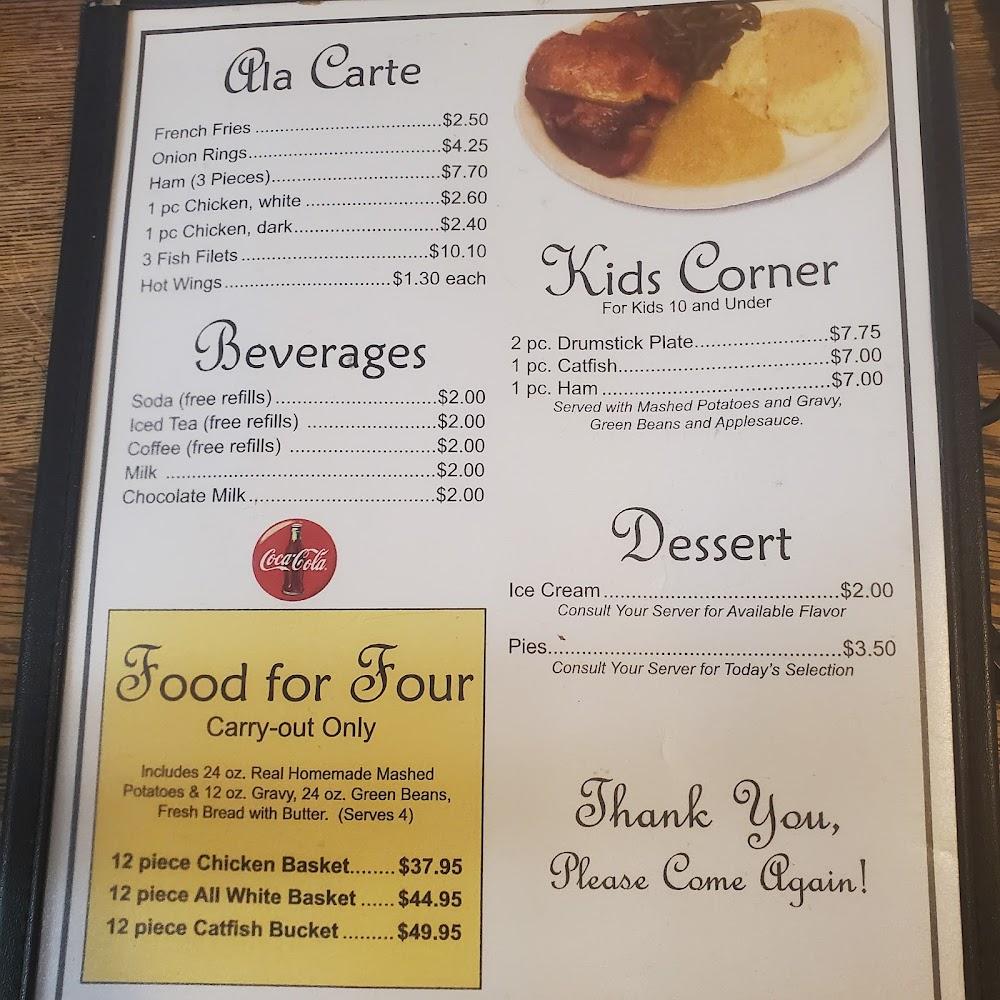 Ala Carte
French Fries ..........$2.50
Onion Rings..........$4.25
Ham (3 Pieces)..........$7.70
1 pc Chicken, white ..........$2.60
1 pc Chicken, dark..........$2.40
3 Fish Filets ..........$10.10
Hot Wings..........$1.30 each
Beverages
Soda (free refills)..........$2.00
Iced Tea (free refills) ..........$2.00
Coffee (free refills) ..........$2.00
Milk ..........$2.00
Chocolate Milk..........$2.00
Coca-Cola
Food for Four
Carry-out Only
Includes 24 oz. Real Homemade Mashed
Potatoes & 12 oz. Gravy, 24 oz. Green Beans,
Fresh Bread with Butter. (Serves 4)
12 piece Chicken Basket........$37.95
12 piece All White Basket ......$44.95
12 piece Catfish Bucket .........$49.95
Kids Corner
For Kids 10 and Under
2 pc. Drumstick Plate..........$7.75
1 pc. Catfish..........$7.00
1 pc. Ham ..........$7.00
Served with Mashed Potatoes and Gravy,
Green Beans and Applesauce.
Dessert
Ice Cream..........$2.00
Consult Your Server for Available Flavor
Pies..........$3.50
Consult Your Server for Today's Selection
Thank You,
Please Come Again!